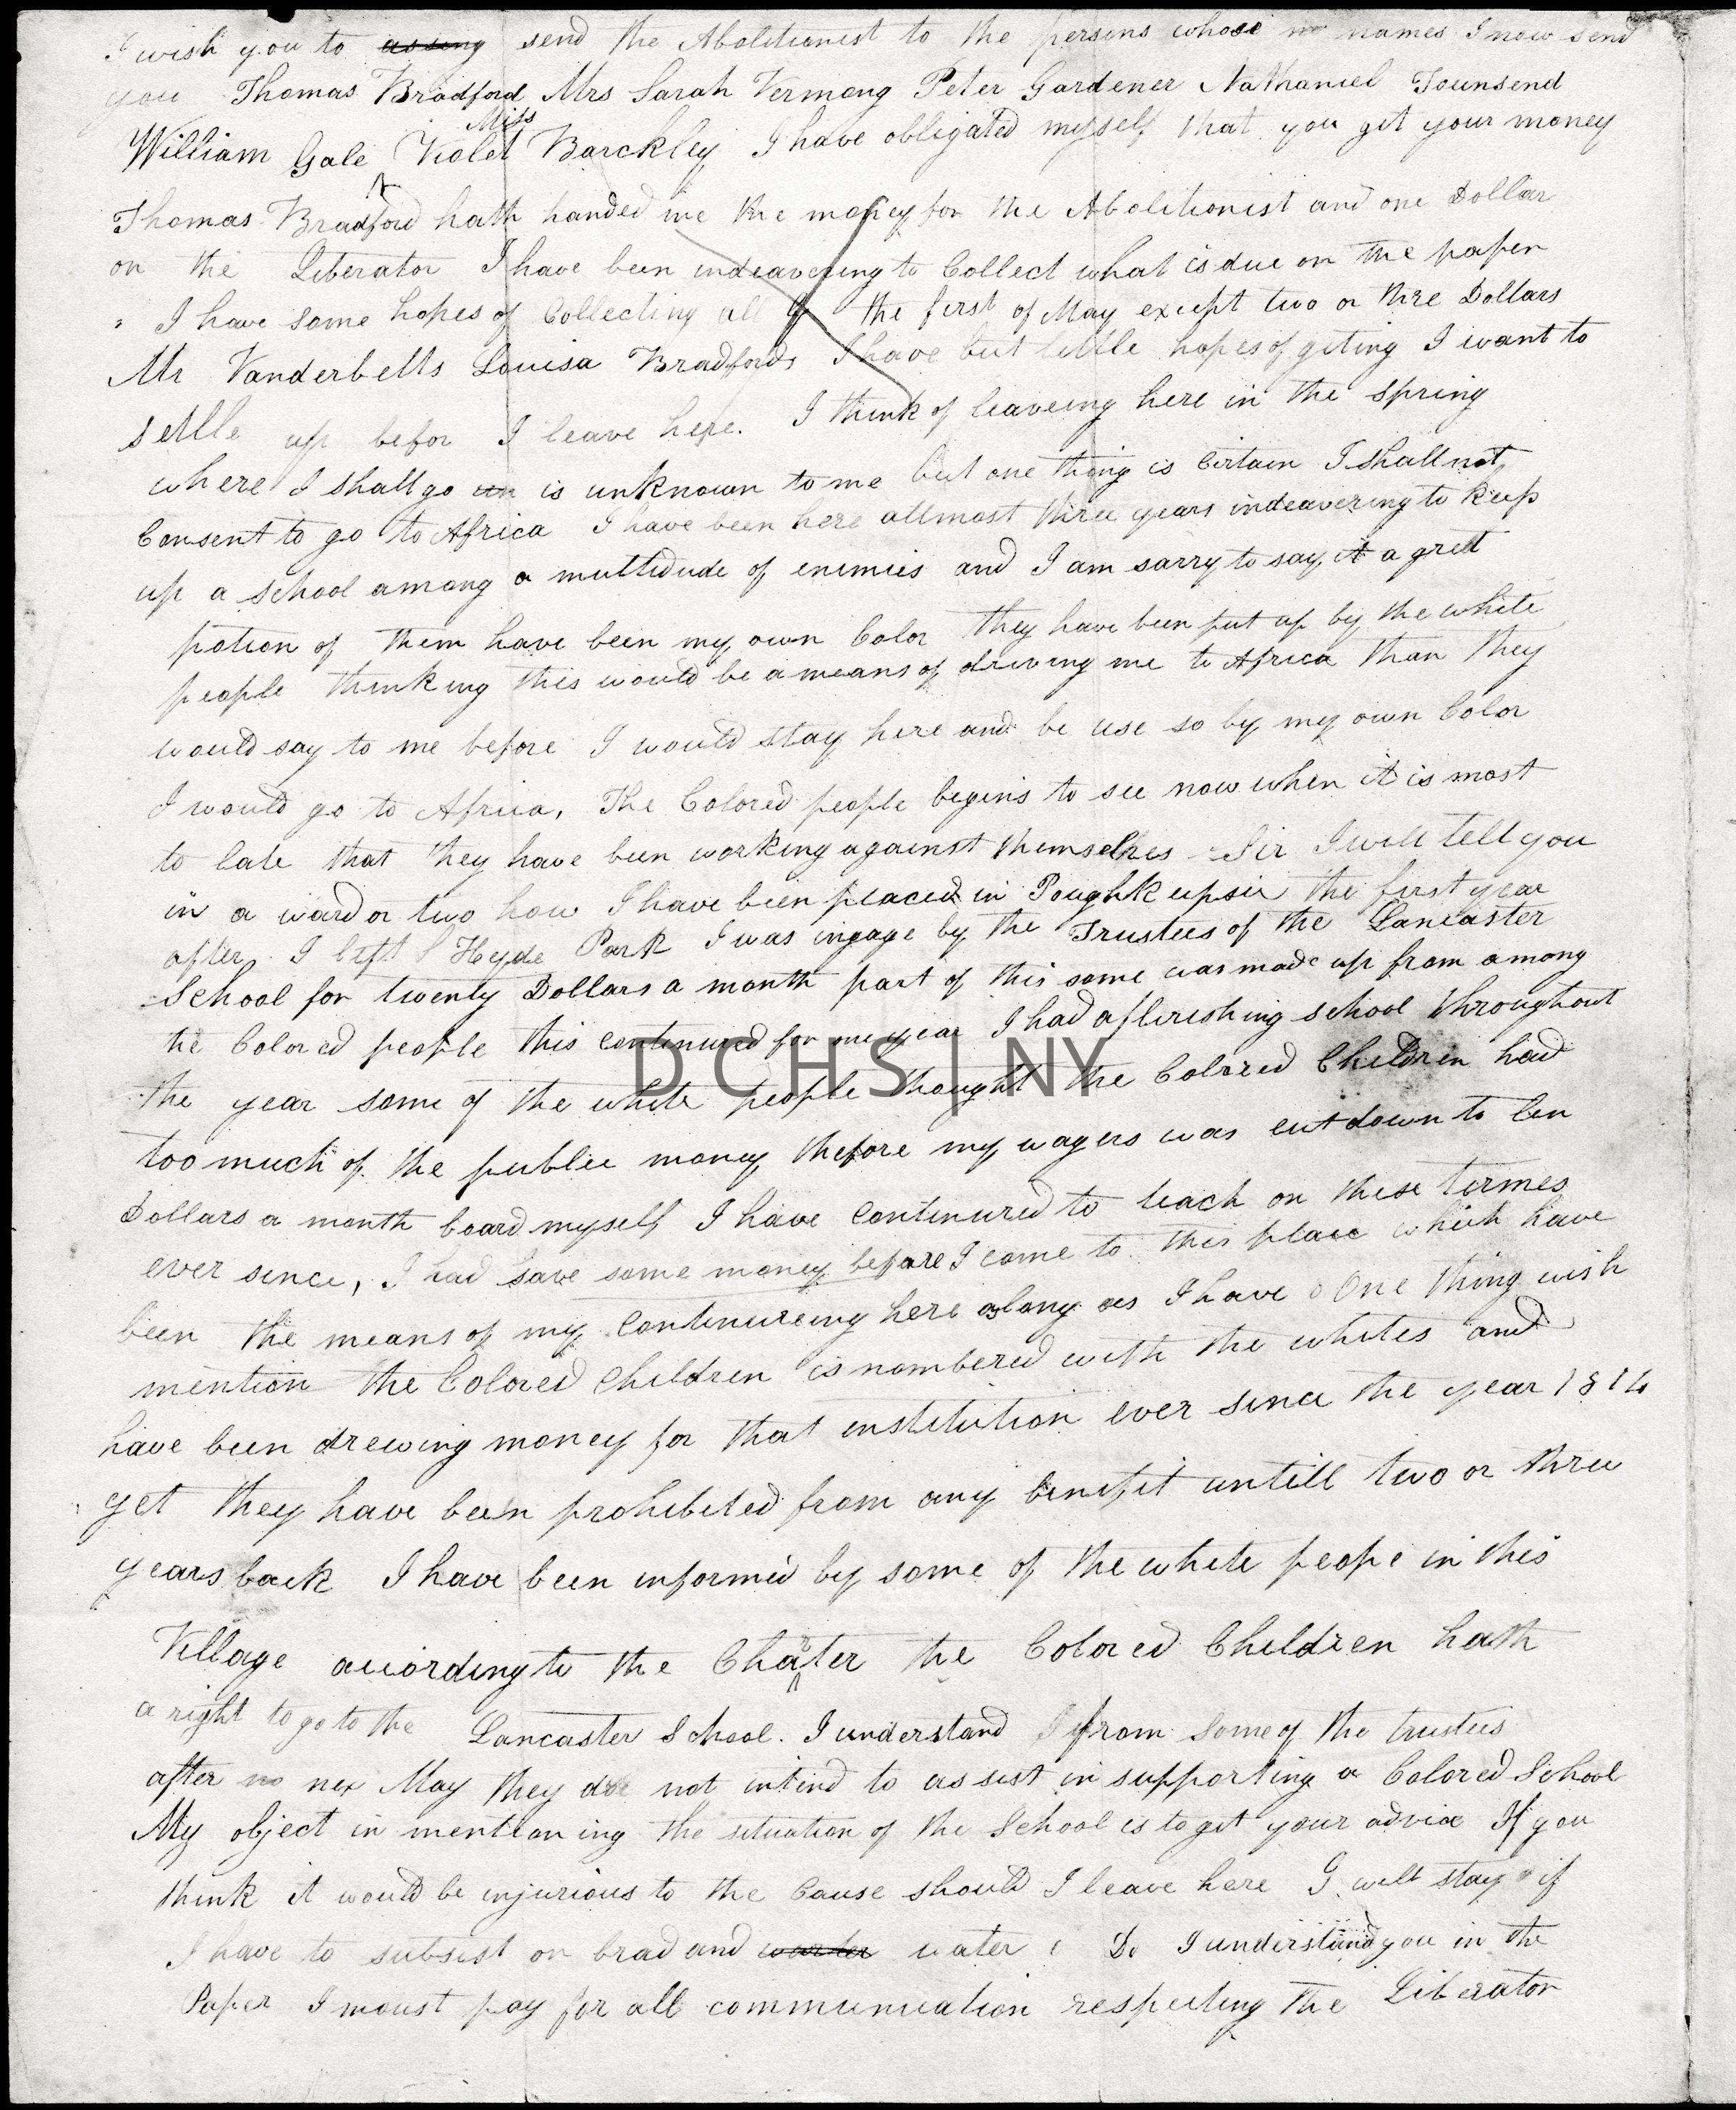 I wish you to assing send the Abolitionist to the persons whose names I now send
you Thomas Bradford Mrs Sarah Vermong Peter Gardener Nathaniel Tounsend
Miss
William Gale Violet Barckley I have obligated myself that you git your money
Thomas Bradford hath handed me the money for the Abolitionist and one Dollar
on the Liberator I have been indeavering to Collect what is due on the paper
I have some hopes of Collecting all by the first of May except two or thre Dollars
Mr Vanderbelts Louisa Bradfords I have but little hopes of giting I want to
settle up befor I leave here. I think of leaveing here in the spring
where I shall go is unknown to me but one thing is Cirtain I shall not
Consent to go to Africa I have been here allmost three years indeavering to keep
up a school among a multidude of enimies and I am sarry to say it a gret
potion of them have been my own Color they have been put up by the white
people thinking this would be a means of driving me to Africa than they
would say to me before I would stay here and be use so by my own Color
I would go to Africa, The Colored people begins to see now when it is most
to late that they have been working against themselves Sir I will tell you
in a word or two how I have been placed in Poughkeepsie the first year
after I left Heyde Park I was ingage by the Trustees of the Lancaster
School for twenty Dollars a month part of this some was made up from among
the Colored people this continued for one year I had a flureshing school throughout
the year some of the white people thought the Colored Children had
too much of the public money thefore my wagers was cut down to ten
Dollars a month board myself I have continured to teach on these termes
ever since, I had save some money before I come to this place which have
been the means of my continureing here as long as I have One thing wish
mention the Colored Children is nombered with the whites and
have been drewing money for that institution ever since the year 1814
yet they have been prohibited from any benifit untill two or three
years back I have been informed by some of the white peope in this
Village acoirding to the Charter the Colored Children hath
a right to go to the Lancaster School. I understand from some of the trustees
after nex May they doe not intend to assist in supporting a Colored School
My object in mentioning the situation of the School is to get your advice If you
think it would be injurious to the Cause should I leave here I will stay if
I have to subsist on brad and warter water Do I understand you in the
Paper I moust pay for all communication respecting the Liberator
DCHS | NY